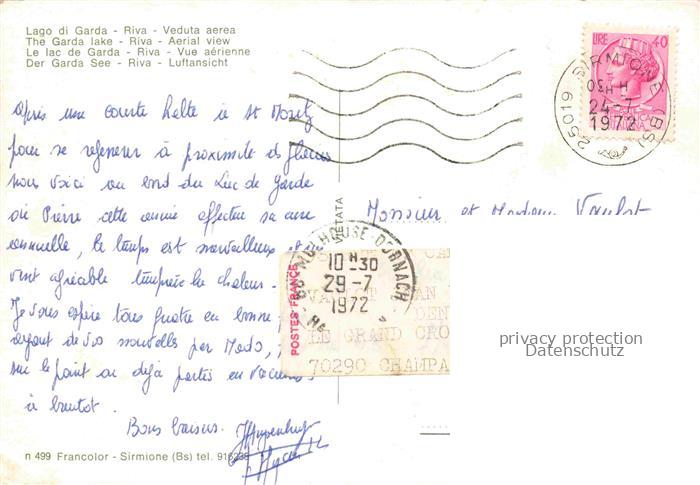 Lago di Garda - Riva - Veduta aerea
The Garda lake - Riva - Aerial view
Le lac de Garda - Riva - Vue aérienne
Der Garda See - Riva - Luftansicht
LIRE 40
25019 SIRMIONE (BS)
24-7
1972
Après une courte halte à St Moritz
pour se regenerer à proximité ds glaciers
nous voici au bord du Lac de Garde
où Pierre cette année effectue sa cure
annuelle, le temps est merveilleux et
vent agréable tempère la chaleur.
Je vous espère tous quatre en forme,
ayant de vos nouvelles par
sur le point ou déjà partis en vacances
à bientot.
Bons baisers.
Monsieur et Madame
VIETATA
68 MULHOUSE-DORNACH
10 H 30
29-7
1972
POSTES FRANCE
LE GRAND CRO
70290 CHAMPA
privacy protection
Datenschutz
n 499 Francolor - Sirmione (Bs) tel.